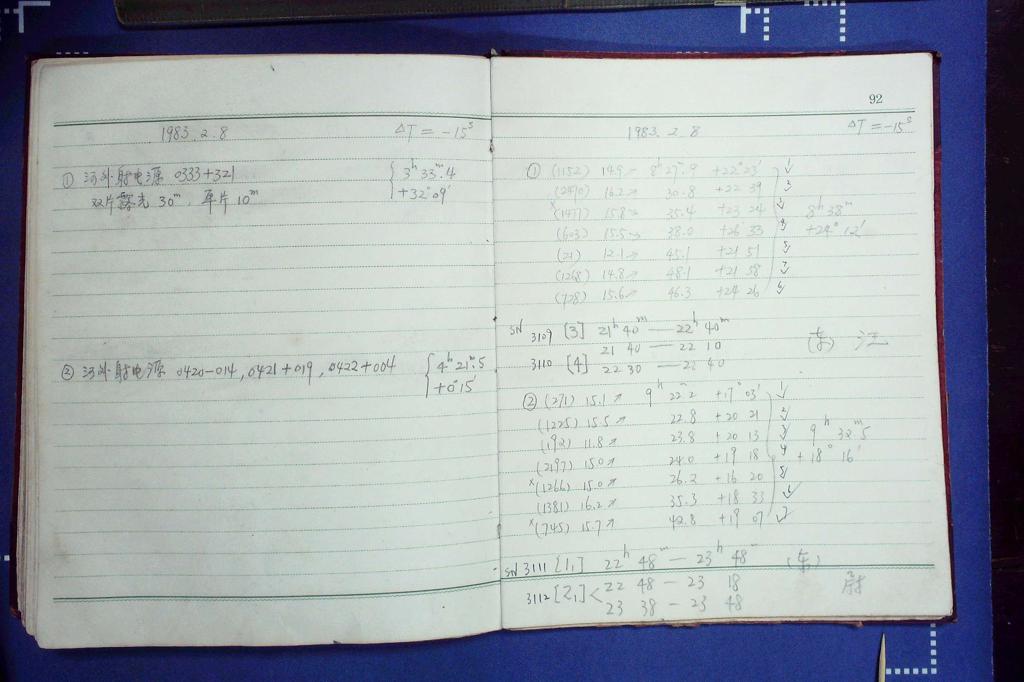 1983.2.8 ΔT = -15ˢ
① 河外射电源 0333+321 { 3ʰ 33ᵐ.4
双片露光 30ᵐ, 单片 10ᵐ +32° 09′
② 河外射电源 0420-014, 0421+019, 0422+004 { 4ʰ 21ᵐ.5
+0° 15′
92
1983.2.8 ΔT = -15ˢ
① (1152) 14.9 ↗ 8ʰ 27ᵐ.9 +22° 23′ 1✓
(2490) 16.2 ↗ 30.8 +22 39
×(1477) 15.8 ↗ 35.4 +23 24 8ʰ 38ᵐ
(603) 15.5 ↗ 38.0 +26 33 +24° 12′
(21) 12.1 ↗ 45.1 +21 51
(1268) 14.8 ↗ 48.1 +21 58
(728) 15.6 ↗ 46.3 +24 26
SN 3109 [3] 21ʰ 40ᵐ — 22ʰ 40ᵐ
21 40 — 22 10 (东) 汪
3110 [4] 22 30 — 22 40
② (271) 15.1 ↗ 9ʰ 22ᵐ.2 +17° 03′ 1✓
(1225) 15.5 ↗ 22.8 +20 21 2✓
(192) 11.8 ↗ 23.8 +20 13 3✓ 9ʰ 32ᵐ.5
(2197) 15.0 ↗ 24.0 +19 18 4✓ +18° 16′
×(1266) 15.0 ↗ 26.2 +16 20 5✓
(1381) 16.2 ↗ 35.3 +18 33 6✓
×(745) 15.7 ↗ 42.8 +19 07 7✓
SN 3111 [1₁] 22ʰ 48ᵐ — 23ʰ 48ᵐ (东)
3112 [2₁] < 22 48 — 23 18
23 38 — 23 48